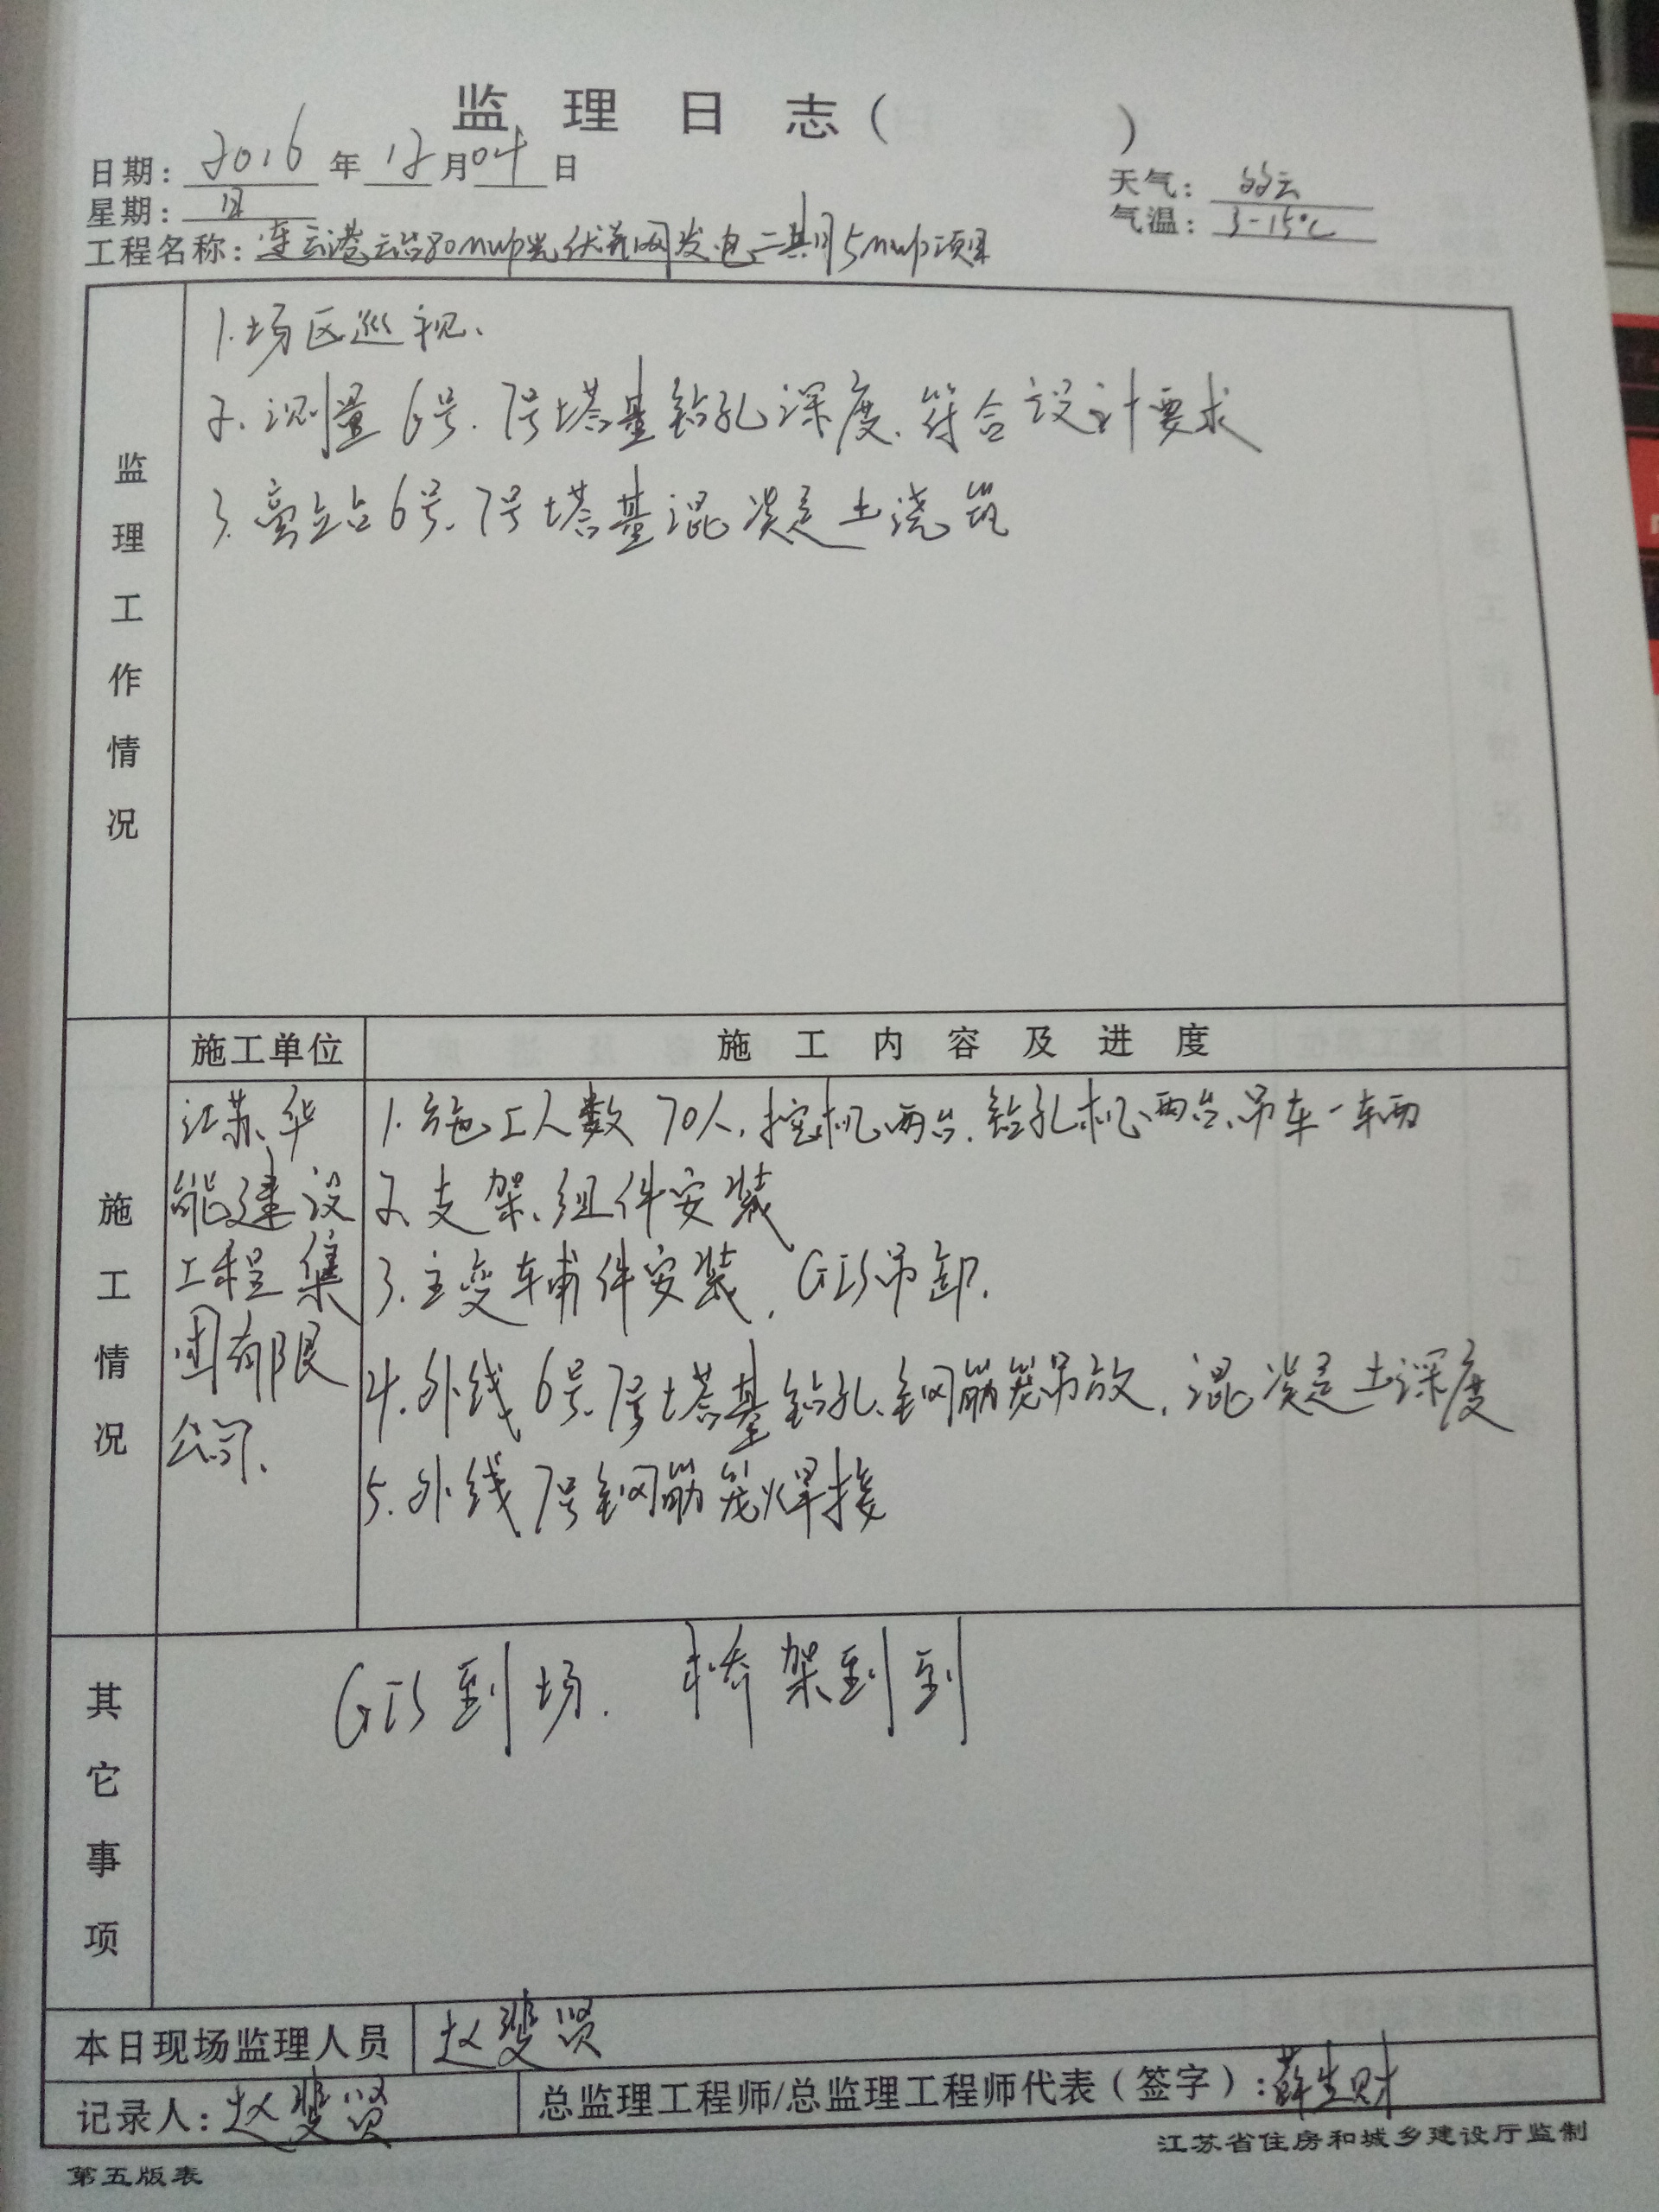 监理日志（ ）
日期：2016年12月04日
天气：多云
星期：日
气温：3-15℃
工程名称：连云港云台80mwp光伏并网发电二期5mwp项目
监理工作情况
1.场区巡视、
2、测量6号、7号塔基钻孔深度、符合设计要求
3.旁站6号、7号塔基混凝土浇筑
施工情况
施工单位
施工内容及进度
江苏华
能建设
工程集
团有限
公司、
1.施工人数70人，挖机两台、钻孔机两台、吊车一辆
2、支架、组件安装
3.主变辅件安装，GIS吊卸.
4.外线6号、7号塔基钻孔、钢筋笼吊放，混凝土深度
5.外线7号钢筋笼焊接
其它事项
GIS到场. 桥架到到
本日现场监理人员
赵斐贤
记录人：赵斐贤
总监理工程师/总监理工程师代表（签字）：薛生财
江苏省住房和城乡建设厅监制
第五版表